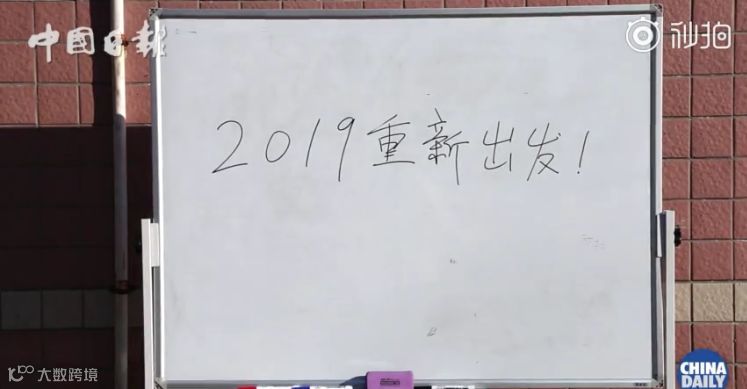 中国日报
秒拍
2019重新出发!
CHINA
DAILY
大数跨境